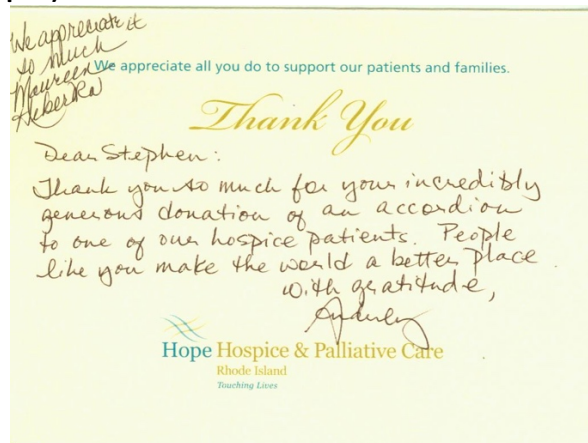 We appreciate it
so much
Maureen
We appreciate all you do to support our patients and families.
Thank You
Dear Stephen:
Thank you so much for your incredibly
generous donation of an accordion
to one of our hospice patients. People
like you make the world a better place
with gratitude,
Hope Hospice & Palliative Care
Rhode Island
Touching Lives